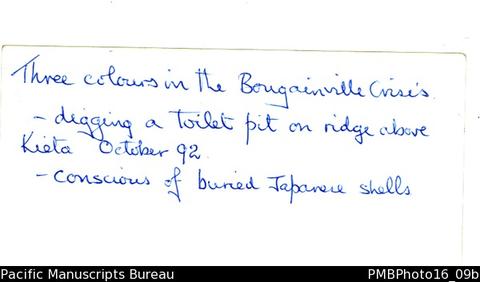 Three colours in the Bougainville Crisis.
- digging a toilet pit on ridge above
Kieta October 92.
- conscious of buried Japanese shells
Pacific Manuscripts Bureau PMBPhoto16_09b